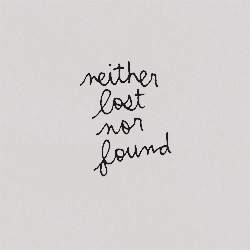 neither
lost
nor
found